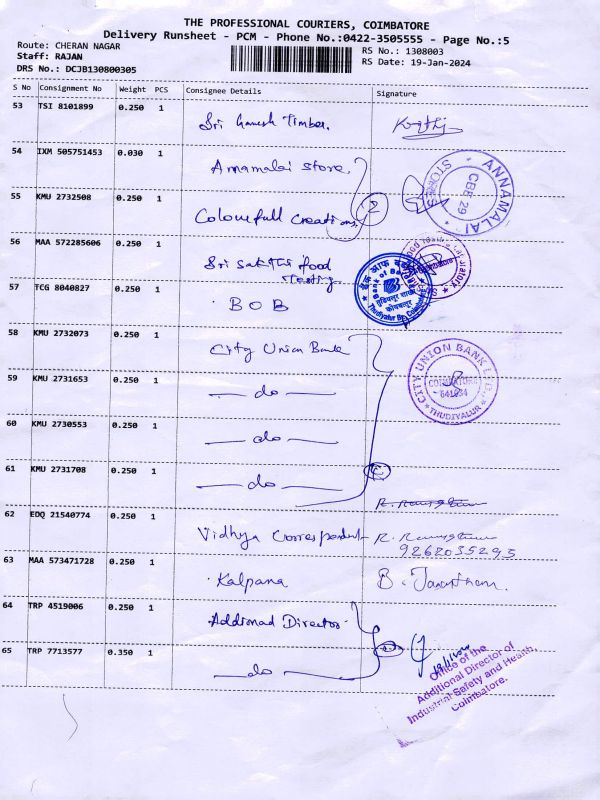 THE PROFESSIONAL COURIERS, COIMBATORE
Delivery Runsheet - PCM - Phone No.:0422-3505555 - Page No.:5
Route: CHERAN NAGAR
RS No.: 1308003
Staff: RAJAN
RS Date: 19-Jan-2024
DRS No.: DCJB130800305
S No Consignment No Weight PCS Consignee Details Signature
53 TSI 8101899 0.250 1
Sri Ganesh Timber.
54 IXM 505751453 0.030 1
Annamalai store,
STORES ★ ANNAMALAI ★
CBE 29
55 KMU 2732508 0.250 1
Colourfull Creations,
2
56 MAA 572285606 0.250 1
Sri sakthi food
Testing
57 TCG 8040827 0.250 1
BOB
बैंक ऑफ बड़ौदा
Bank of Baroda
Thudiyalur Br. Coimbatore
58 KMU 2732073 0.250 1
City Union Bank
CITY UNION BANK LTD.,
COIMBATORE
641034
★ THUDIYALUR ★
59 KMU 2731653 0.250 1
— do —
60 KMU 2730553 0.250 1
— do —
61 KMU 2731708 0.250 1
— do —
62 EDQ 21540774 0.250 1
Vidhya Correspondent
9262035295
63 MAA 573471728 0.250 1
Kalpana
64 TRP 4519006 0.250 1
Addional Director
65 TRP 7713577 0.350 1
— do —
Office of the
Additional Director of
Industrial Safety and Health,
Coimbatore.